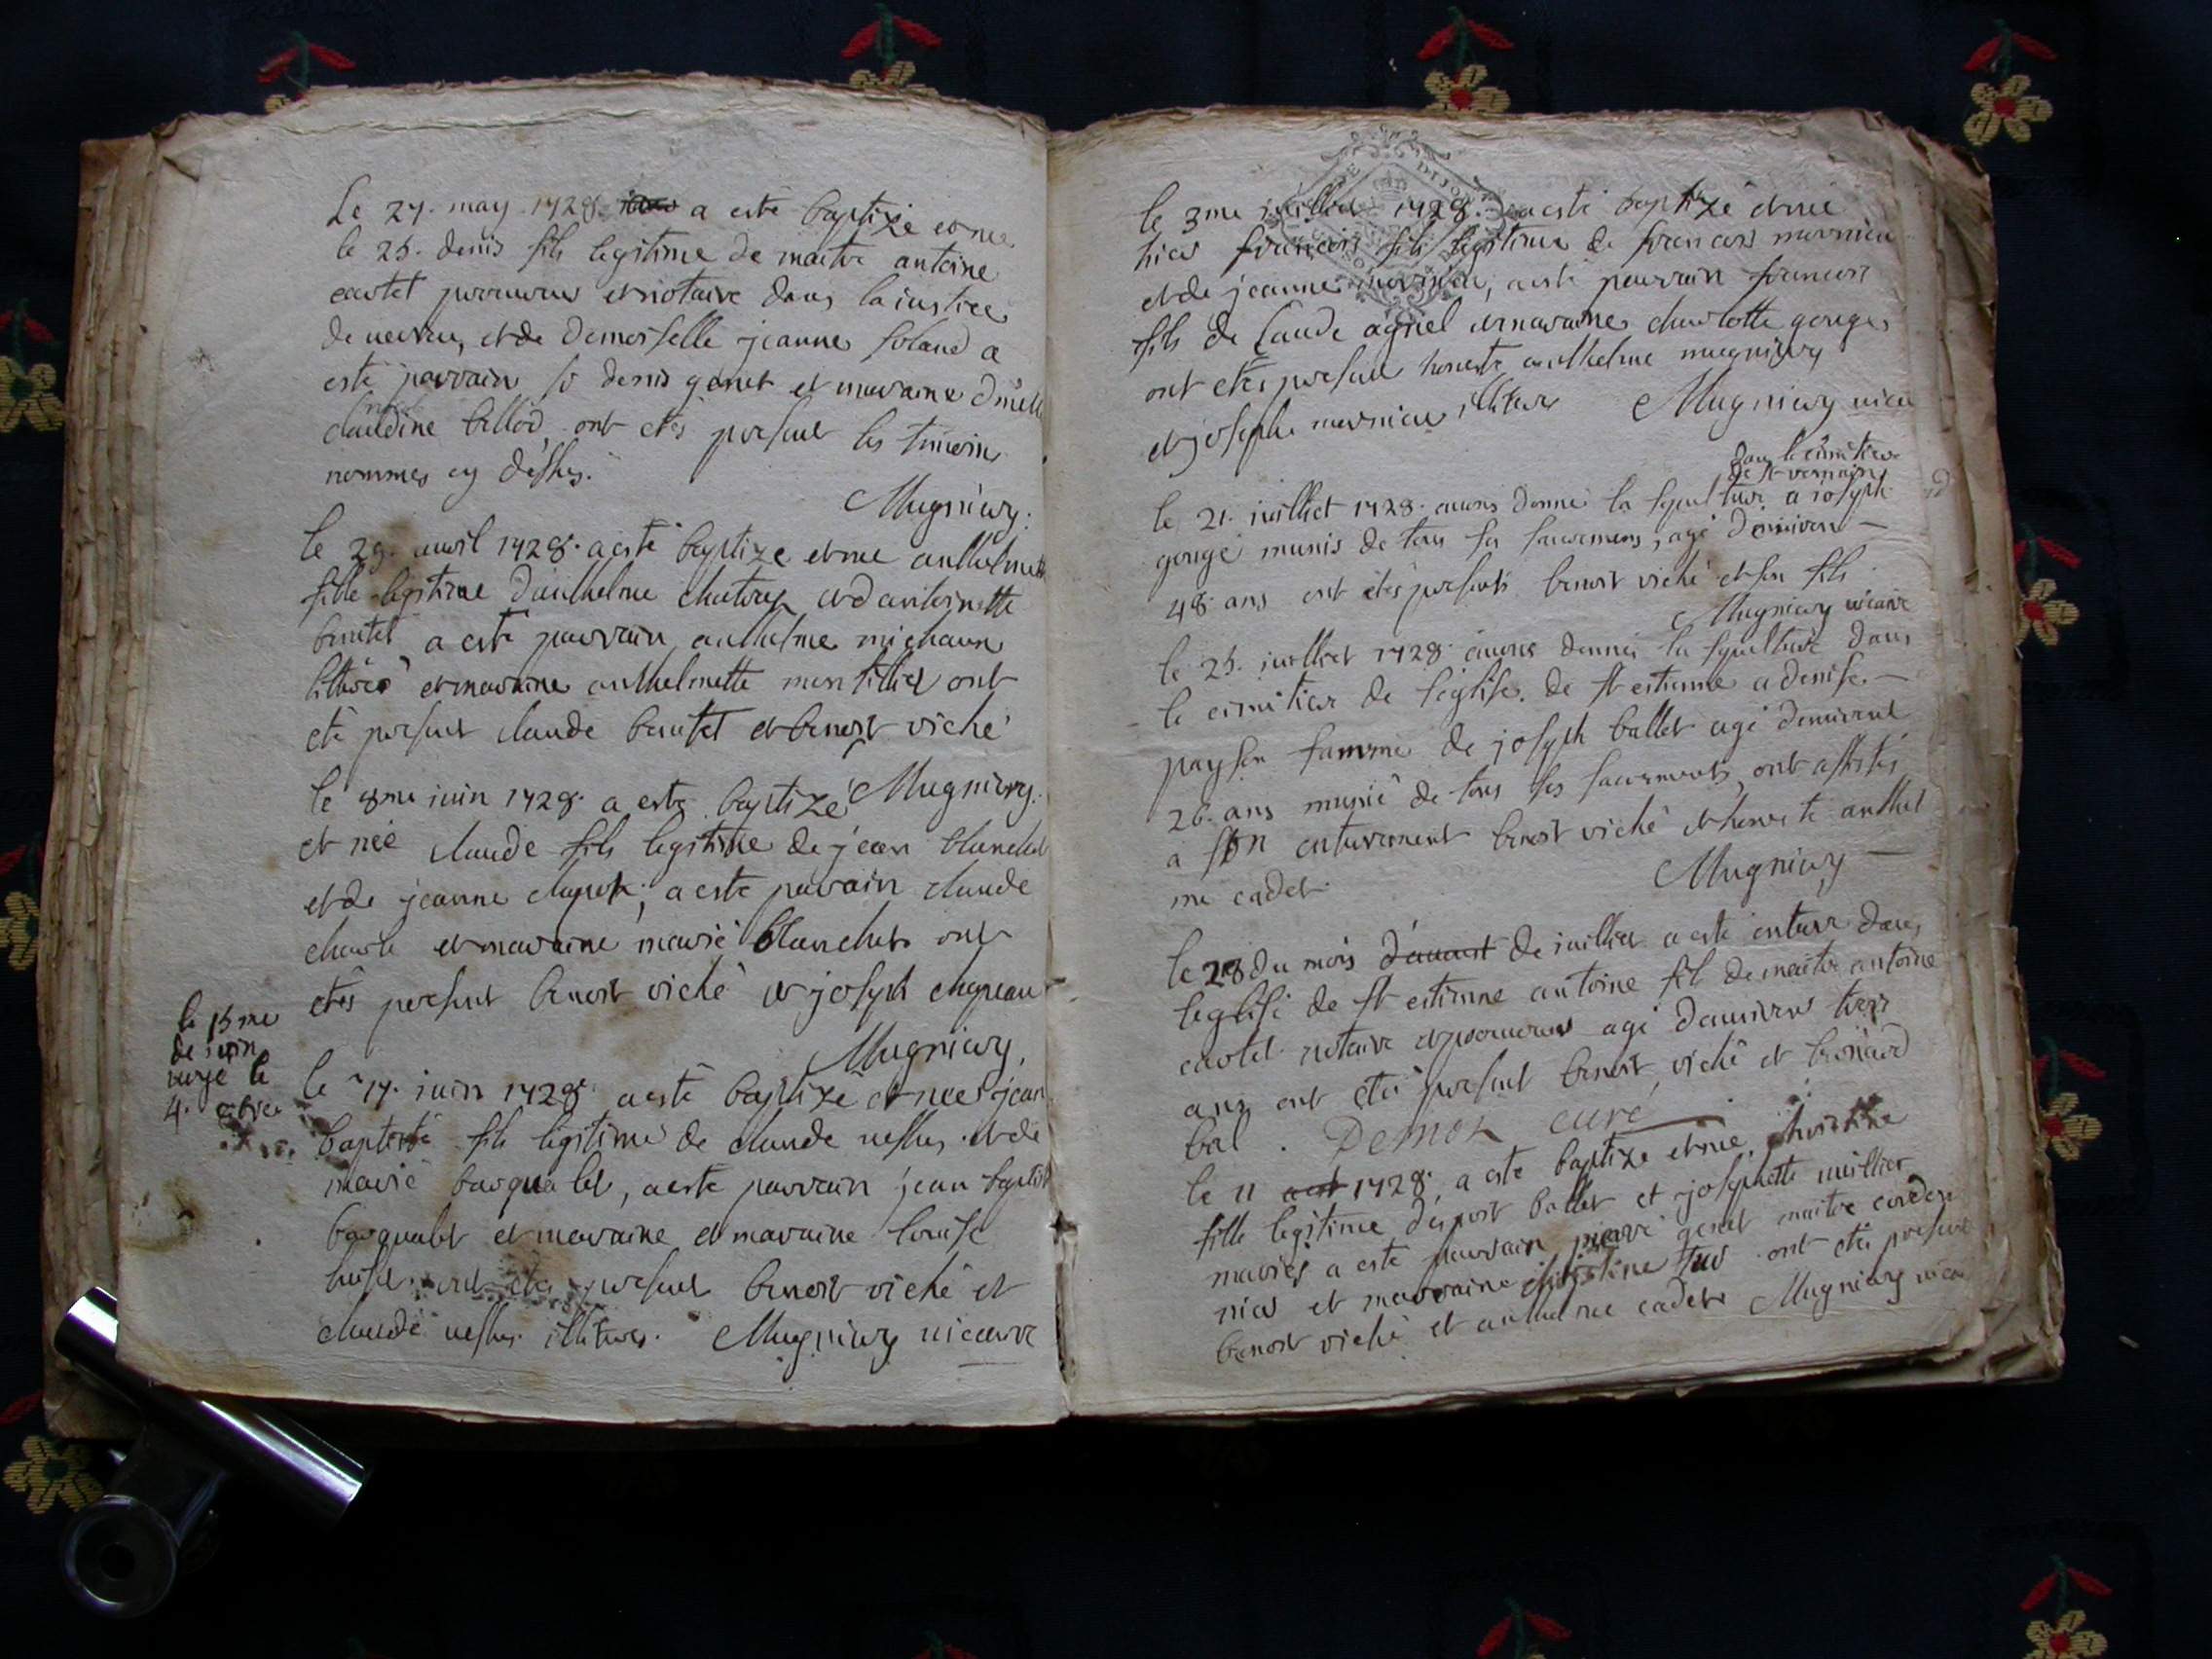 Le 27. may. 1728. a esté baptizé et nee
le 25. denis fils legitime de maitre antoine
castel procureur et notaire dans la iustice
de et de demoiselle jeanne foland a
esté parrain sr denis genet et maraine dmelle
claudine billod, ont etés present les timoins
nommes cy dessus.
Mugniery.
le 29. avril 1728. a esté baptize et nee anthelmette
fille legitime d'anthelme et d'antoinette
bautet a esté parrain anthelme michaux
et maraine anthelmette ont
eté present claude bautet et benoit viché
Mugniery.
le 8me iuin 1728. a este baptizé
et neé claude fils legitime de jean blanchet
et de jeanne a este parain claude
charle et maraine marie blanchet ont
etés present benoit viché et joseph chapeau
Mugniery.
le 15 me
de iuin
le
4.
le 17. iuin 1728. a esté baptizé et nee jean
baptiste fils legitime de claude et de
marie barquelet, a este parrain jean baptiste
barquelet et maraine et maraine louise
ont etés present benoit viché et
claude illiteres. Mugniery vicaire
DIJON
le 3me iuilliet 1728. a esté baptizé et neé
hier francois fils legitime de francois mernieu
et de jeanne a esté parrain francois
fils de Claude agniel et maraine charlotte gouge
ont etés present honeste anthelme mugniery
et joseph mernieu illitere Mugniery vicai
dans le cimitiere
de st vernain
le 21. iuilliet 1728. avons donné la sepulture a joseph
gouge munis de tous ses sacremens, agé d'enviren
48. ans ont etés presents benoit viché et son fils
Mugniery vicaire
le 25. iuilliet 1728. avons donné la sepulture dans
le cimitiere de l'eglise de st estienne a denise
payson famme de joseph ballet agé denvirent
26. ans munié de tous ses sacrements, ont assistés
a son enterement benoit viché et honeste anthel
me cadet. Mugniery
le 28 du mois d'auost de iuilliet a esté enterré dans
leglise de st estienne antoine fils de maitre antoine
castel notaire et procureur agé d'environ trois
ans ont etés present benoit viché et
bal. Demox curé
le 11 1728. a este baptize et nee christine
fille legitime ballet et josephette millier
mariés a esté parrain pierre genet maitre cordon
nier et marraine christine ont etés present
benoit viché et anthelme cadet Mugniery vicai